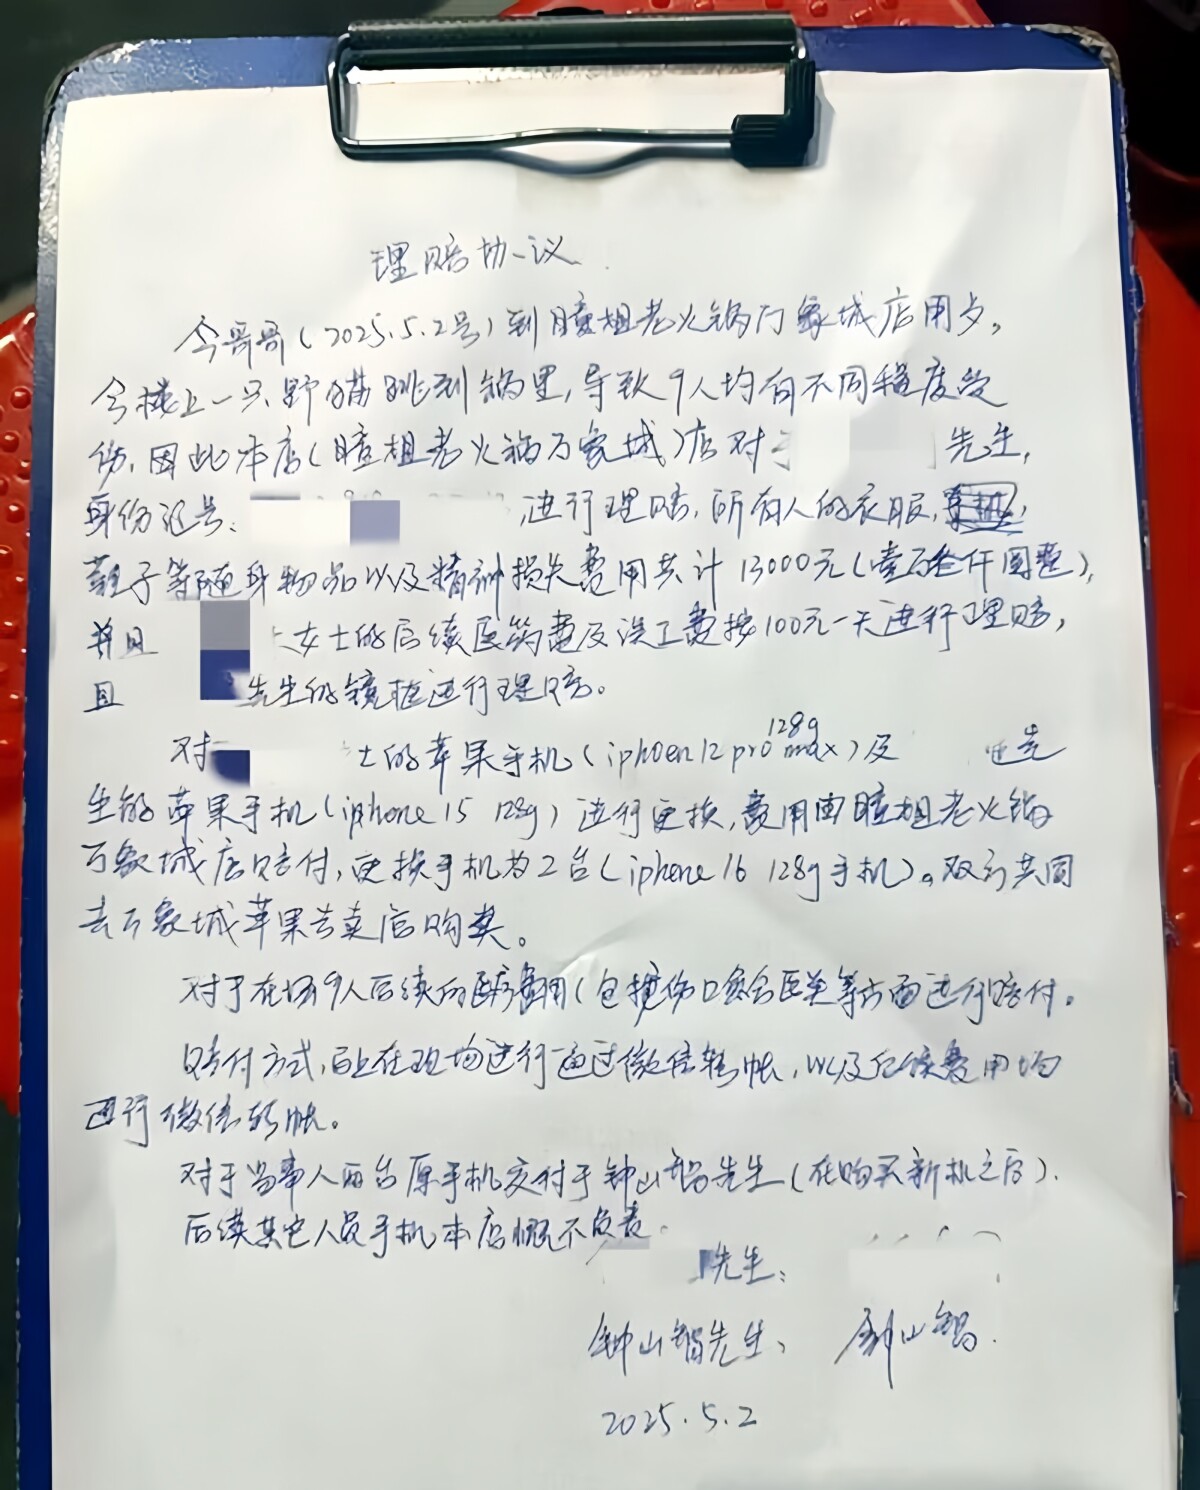 理赔协议
今哥哥(2025.5.2号)到瞳姐老火锅万象城店用夕,
今楼上一只野猫跳到锅里,导致9人均有不同程度受
伤,因此本店(瞳姐老火锅万象城)店对于 先生,
身份证号: 进行理赔,所有人的衣服,
鞋子等随身物品以及精神损失费用共计13000元(壹万叁仟圆整),
并且 女士的后续医药费及误工费按100元一天进行理赔,
且 先生的镜框进行理赔。
对 士的苹果手机(iphoen 12 pro max 128g)及 先
生的苹果手机(iphone 15 128g)进行更换,费用由瞳姐老火锅
万象城店赔付,更换手机为2台(iphone 16 128g手机)。双方共同
去万象城苹果专卖店购买。
对于在场9人后续的医疗费用(包括伤口愈合医美等方面进行赔付。
赔付方式,马上在现场进行通过微信转帐,以及后续费用均
进行微信转帐。
对于当事人两台原手机交付于钟山锠先生(在购买新机之后).
后续其它人员手机本店概不负责。
先生:
钟山锠先生、 钟山锠.
2025.5.2